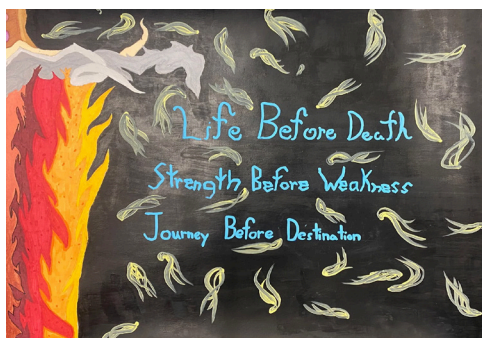 Life Before Death
Strength Before Weakness
Journey Before Destination